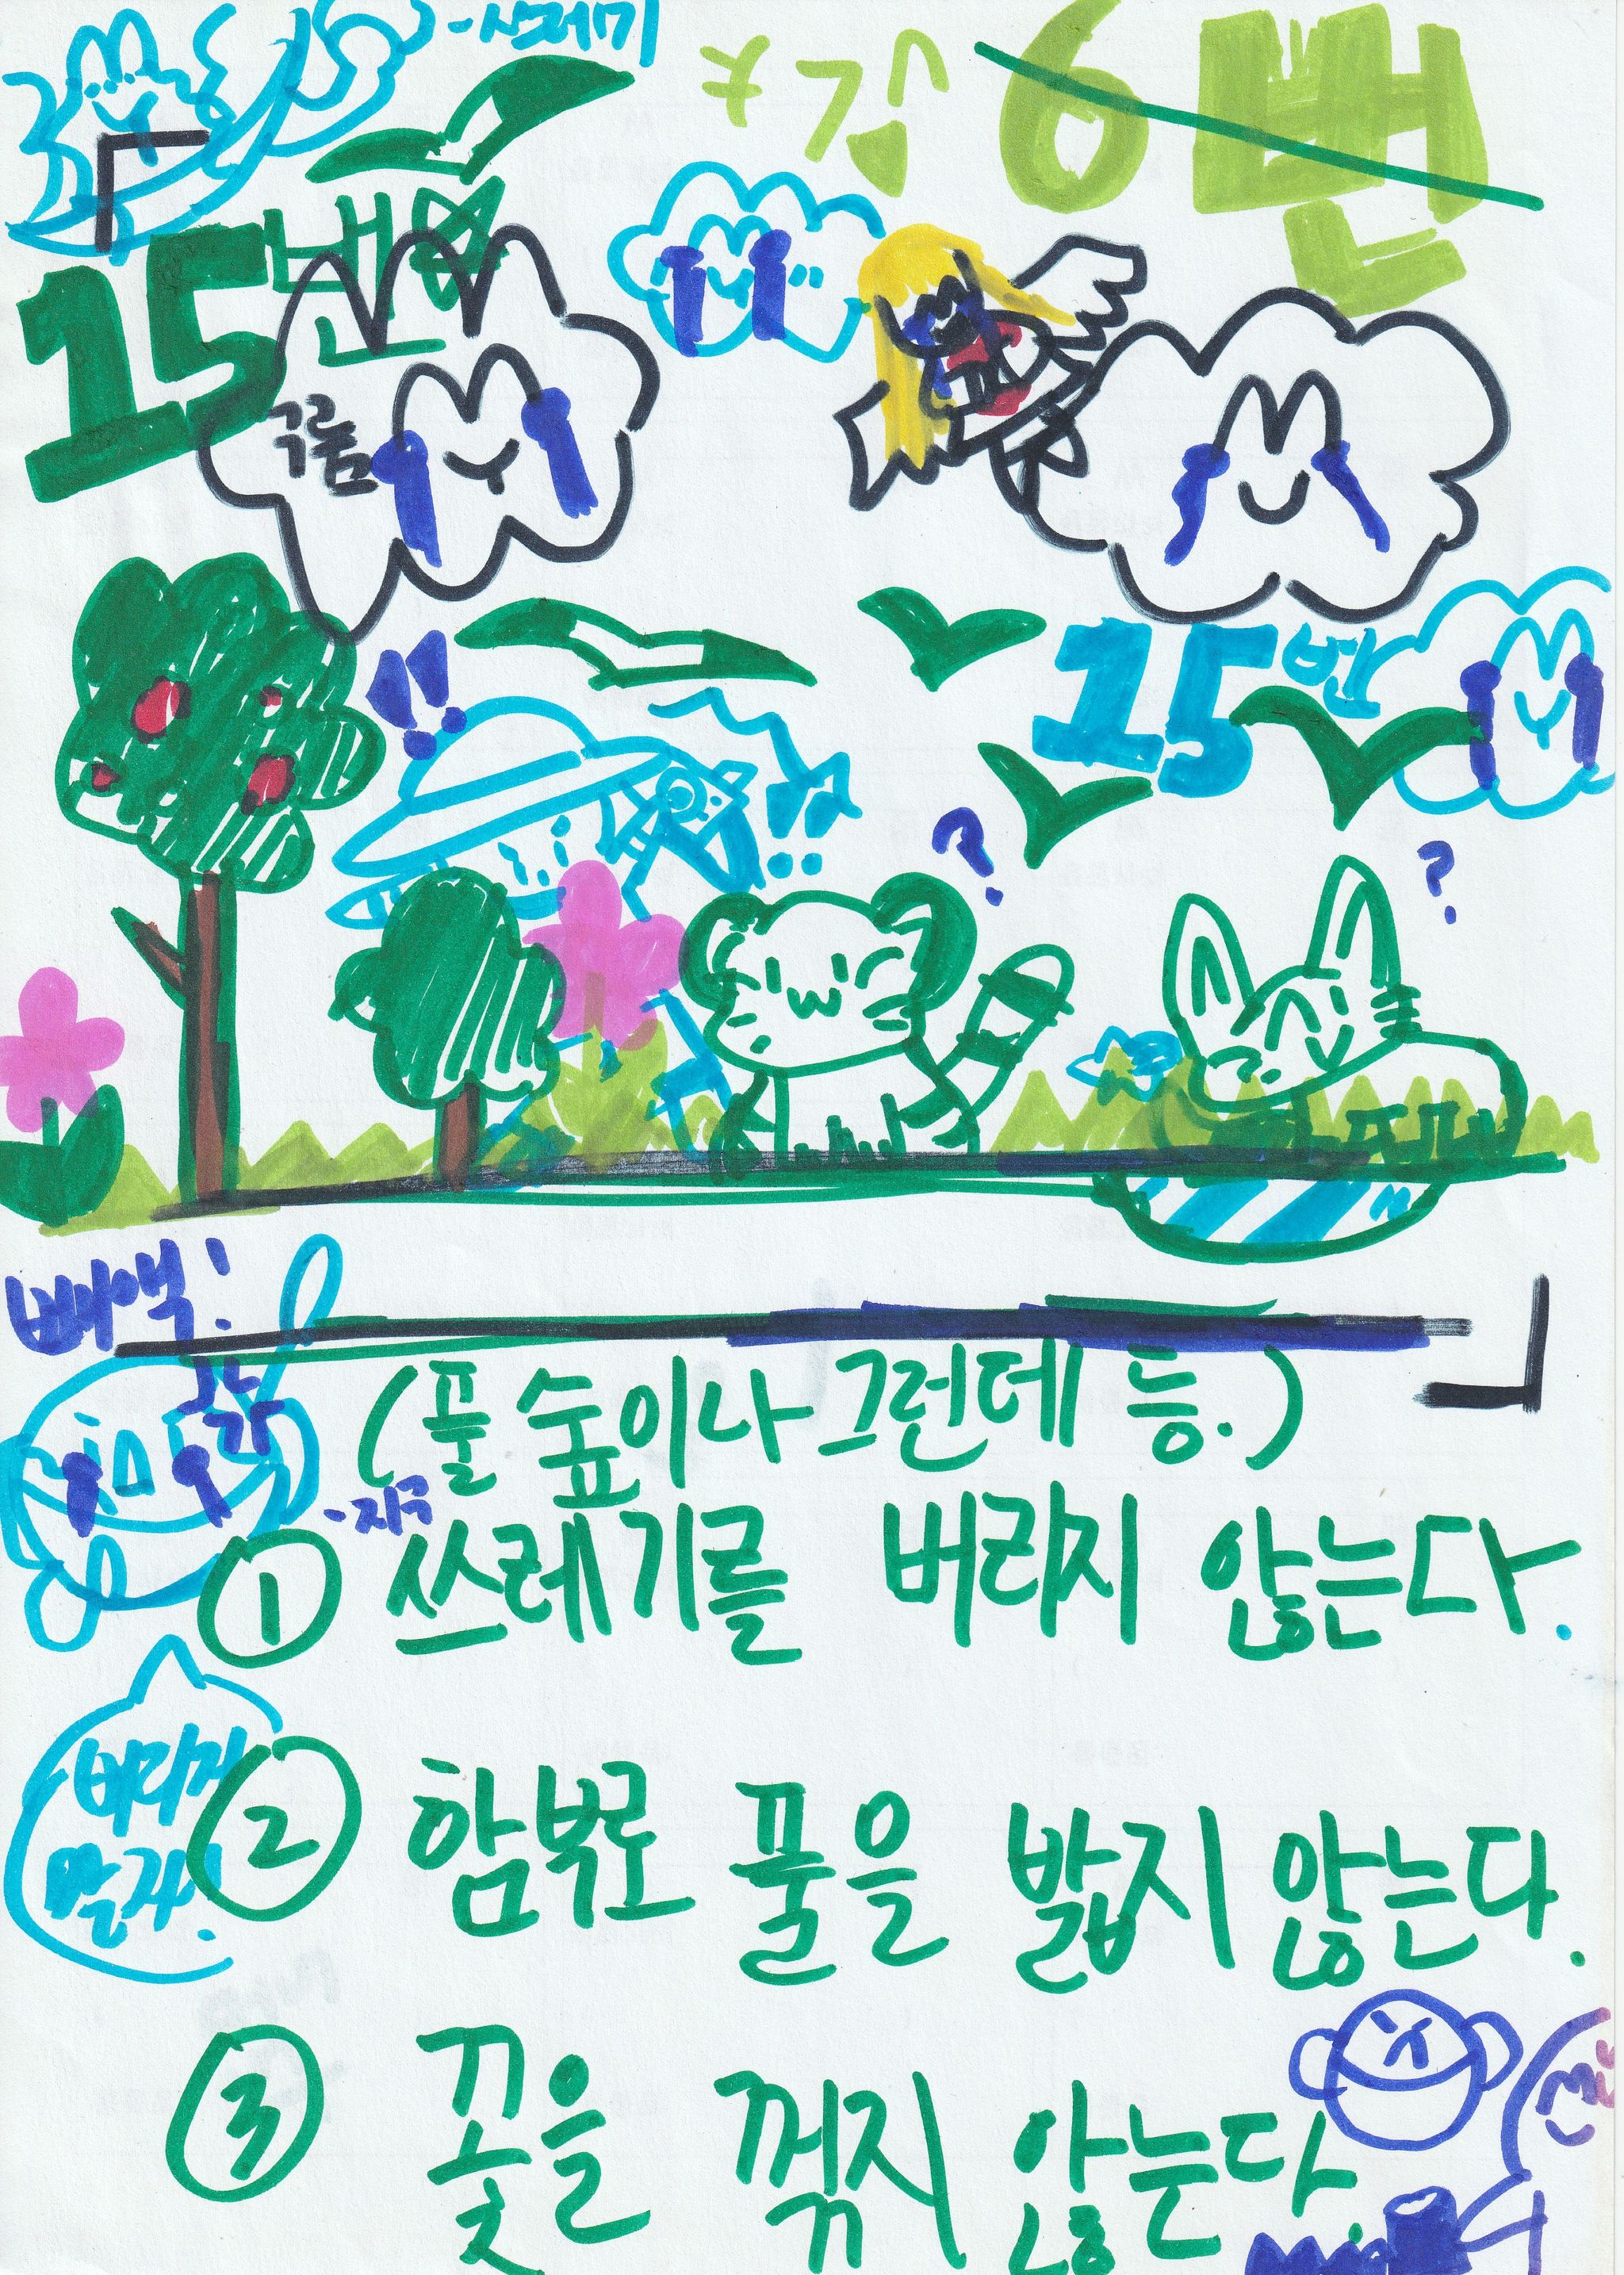 -쓰레기
6번
15번
구름
15번
!!
?
?
빠아액!
(풀 숲이나 그런데 등.)
-지구
① 쓰레기를 버리지 않는다.
버리지
말자!
② 함부로 풀을 밟지 않는다.
③ 꽃을 꺾지 않는다